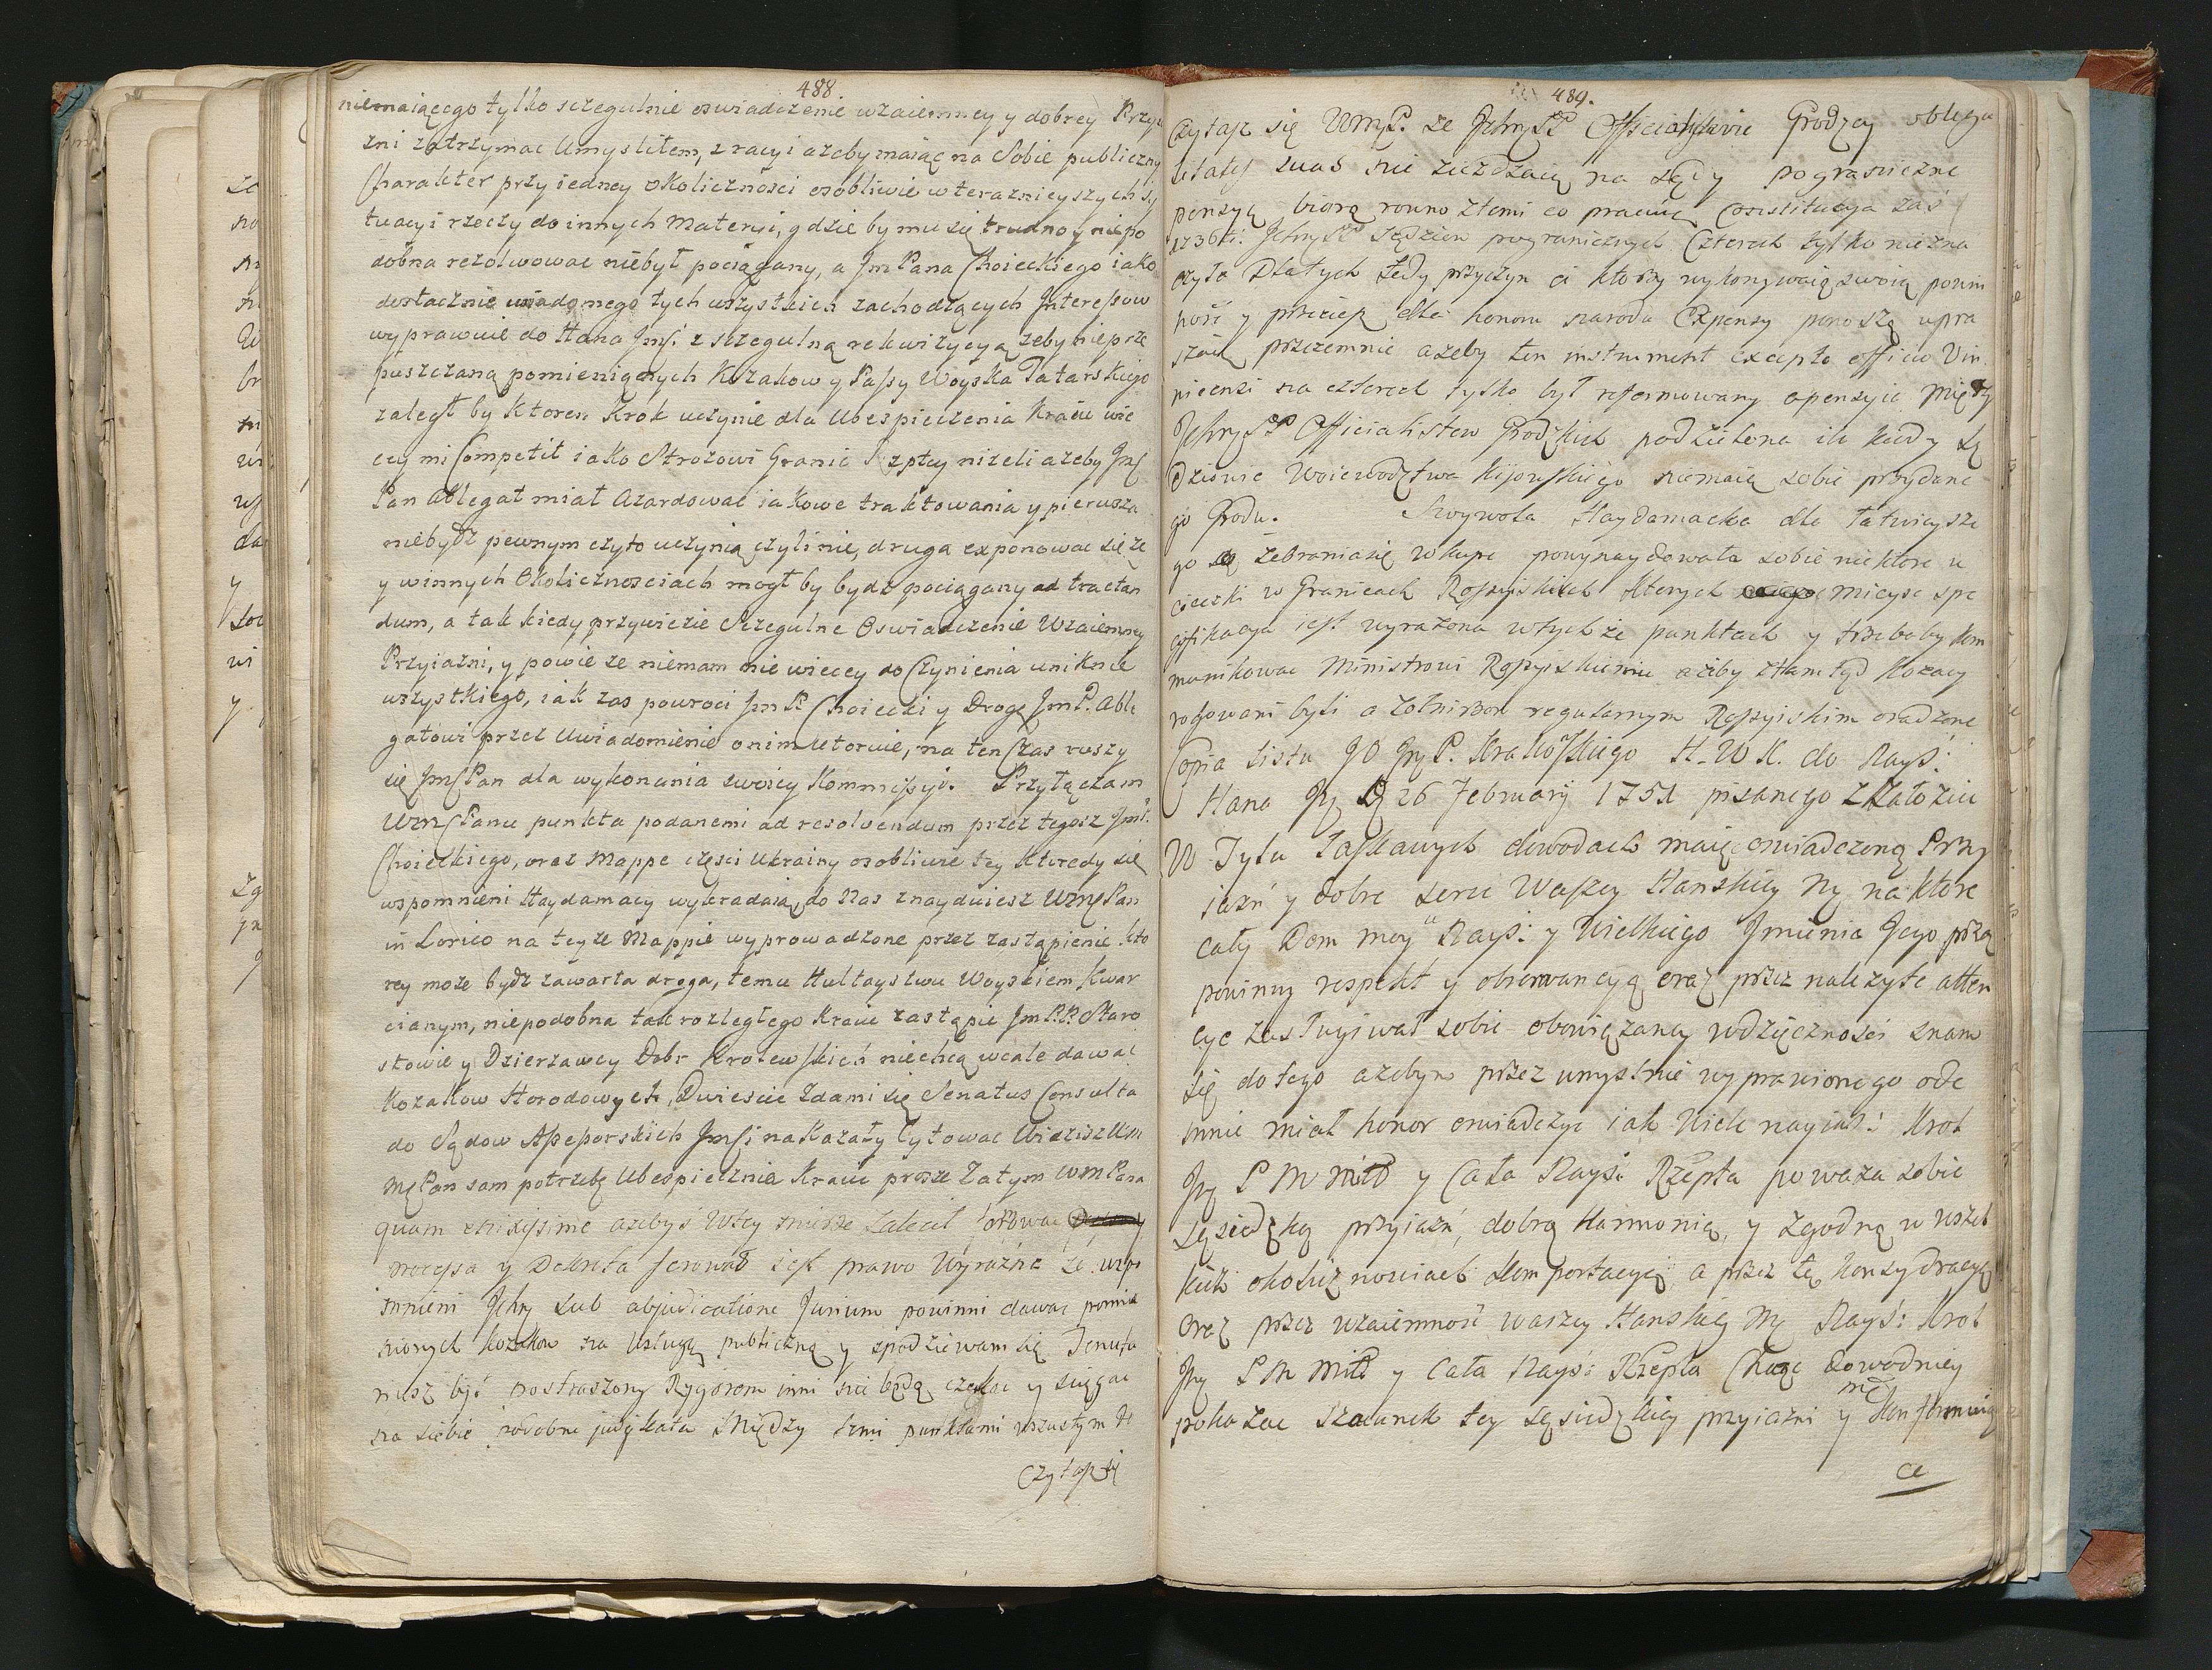 488
niemaiącego tylko sczegulnie oswiadczenie wzaiemney y dobrey Przyia
zni zatrzymac Umyslitem, z racyi azeby maiąc na Sobie publiczny
Charakter przy iedney okolicznosci osobliwie w teraznieyszych sy
tuacyi rzeczy do innych Materyi, gdzie by mu się trudno y niepo
dobna rezolwowac niebył pociągany, a Jm Pana Choieckiego iako
dostacznie wiadomego tych wszystkich zachodzących Interessow
wyprawuie do Hana Jmsi z sczegulną rekwizycyą zeby nieprze
puszczaną pomienionych Kozakow y Passy Woyska Tatarskiego
zaległ by ktoren Krok uczynic dla Ubespieczenia Kraiu wie
cey mi Competit iako Strozowi Granic Rzptey nizeli azeby Jmś
Pan Ablegat miał Azardowac iakowe traktowania y pierwsza
niebydz pewnym czy to uczynią czyli nie, druga exponowac się ze
y w innych Okolicznosciach mogł by bydz pociągany ad tractan
dum, a tak kiedy przywiezie Sczegulne Oswiadczenie Wzaiemney
Przyiazni, y powie ze niemam nic wiecey do Czynienia uniknie
wszystkiego, iak zas powroci Jm P. Choiecki y Drogę Jm P. Able
gatowi przez Uwiadomienie o nim utoruie, na ten Czas ruszy
się Jmś Pan dla wykonania swoiey Kommissyi. Przyłączam
Wmś Panu punkta podanemi ad resolvendum przez tegosz Jm P.
Choieckiego, oraz Mappe częsci Ukrainy osobliwie tey Ktoredy się
wspomnieni Haydamacy wykradaią do Nas znaydziesz Wmę Pan
in Lorico na teyze Mappie wyprowadzone przez zastąpienie kto
rey moze bydz zawarta droga, temu Hultaystwu Woyskiem Kwar
cianym, niepodobna tak rozległego Kraiu zastąpic Jm P.P. Staro
stowie y Dzierzawcy Dobr Krolewskich niechcą wcale dawać
Kozakow Horodowych, Dwiescie Zdami się Senatus Consulta
do Sądow Assessorskich Jmśi nakazały Cytowac Widzisz Wm
Mę Pan sam potrzebę Ubespiecznia Kraiu prosze Zatym WM Pana
quam enixissime azebyś Wtey mierze zalecił forowac
processa y Dekreta ferować iest prawo Wyrazne ze wspo
mnieni Jchm sub abjudicatione Jurium powinni dawac pomie
nionych kozakow na Usługę publiczną y spodziewam się Tenuta
riusz być postraszony Rygorem inni nie będą czekac y sciągac
na siebie podobne judykata Między temi punktami wszustym
Czytasz się
489.
Czytasz się Wmś P. ze Jchm PP Officialistowie Grodzcy oblega
litates suas nie ziezdzaią na sądy pograniczne
pensyą biorą rowno ztemi co pracuią Constitucya zaś
1736ti. Jchm PP Sędziow pogranicznych Czterech tylko nazna
czyła Dlatych tedy przyczyn ci ktorzy wykonywaią swoią powin
ność y przeciesz dla honoru narodu Expensy ponoszą upra
szaią przezemnie azeby ten instrument excepto officio Vin
nicensi na czterech tylko był reformowany apensyie Między
Jchm PP Officialistow Grodzkich podzielona ile kiedy Sę
dziowie Woiewodztwa Kijowskiego niemaią sobie przydane
go Grodu. Swywola Haydamacka dla łatwieysze
go zebrania się w kupe powynaydowała sobie niektore u
cieczki w Granicach Rossyiskich ktorych mieysc spe
cyfikacya iest wyrazona wtychze punktach y trzebaby kom
munikowac Ministrowi Rossyiskiemu azeby ztamtąd Kozacy
rogowani byli a zolnirzom regularnym Rossyiskim oradzone
Copia Listu JO JmP. Krakoskiego H. W K. do Nayś:
Hana Jm D 26 February 1751 pisanego z Załoziec
W Tylu Łaskawych dowodach maiąc oswiadczoną Przy
iazń y dobre serce Waszey Hanskiey Mci na ktore
cały Dom moy u Nayś: y Wielkiego Jmienia Jego przez
powinny respekt y obserwancyą oraz przez nalezyte atten
cye zasługiwał sobie obowiązaney wdzięcznosci znam
się do tego azebym przez umyslnie wyprawionego ode
mnie miał honor oswiadczyc iak Wiele nayias: Krol
Jm P M Miłć y Cała Nayś: Rzepta powaza sobie
Sąsiedzką przyiazń, dobrą Harmonią, y Zgodną w wszel
kich okolicznosciach komportacyą, a przez tę konsyderacyę
oraz przez wzaiemność waszey Hanskiey Mci Nayś: Krol
Jm P M Miłć y Cała Nayś: Rzepta Chcąc dowodniey
pokazac szacunek tey sąsiedzkiey przyiazni y konfirmuią
ce